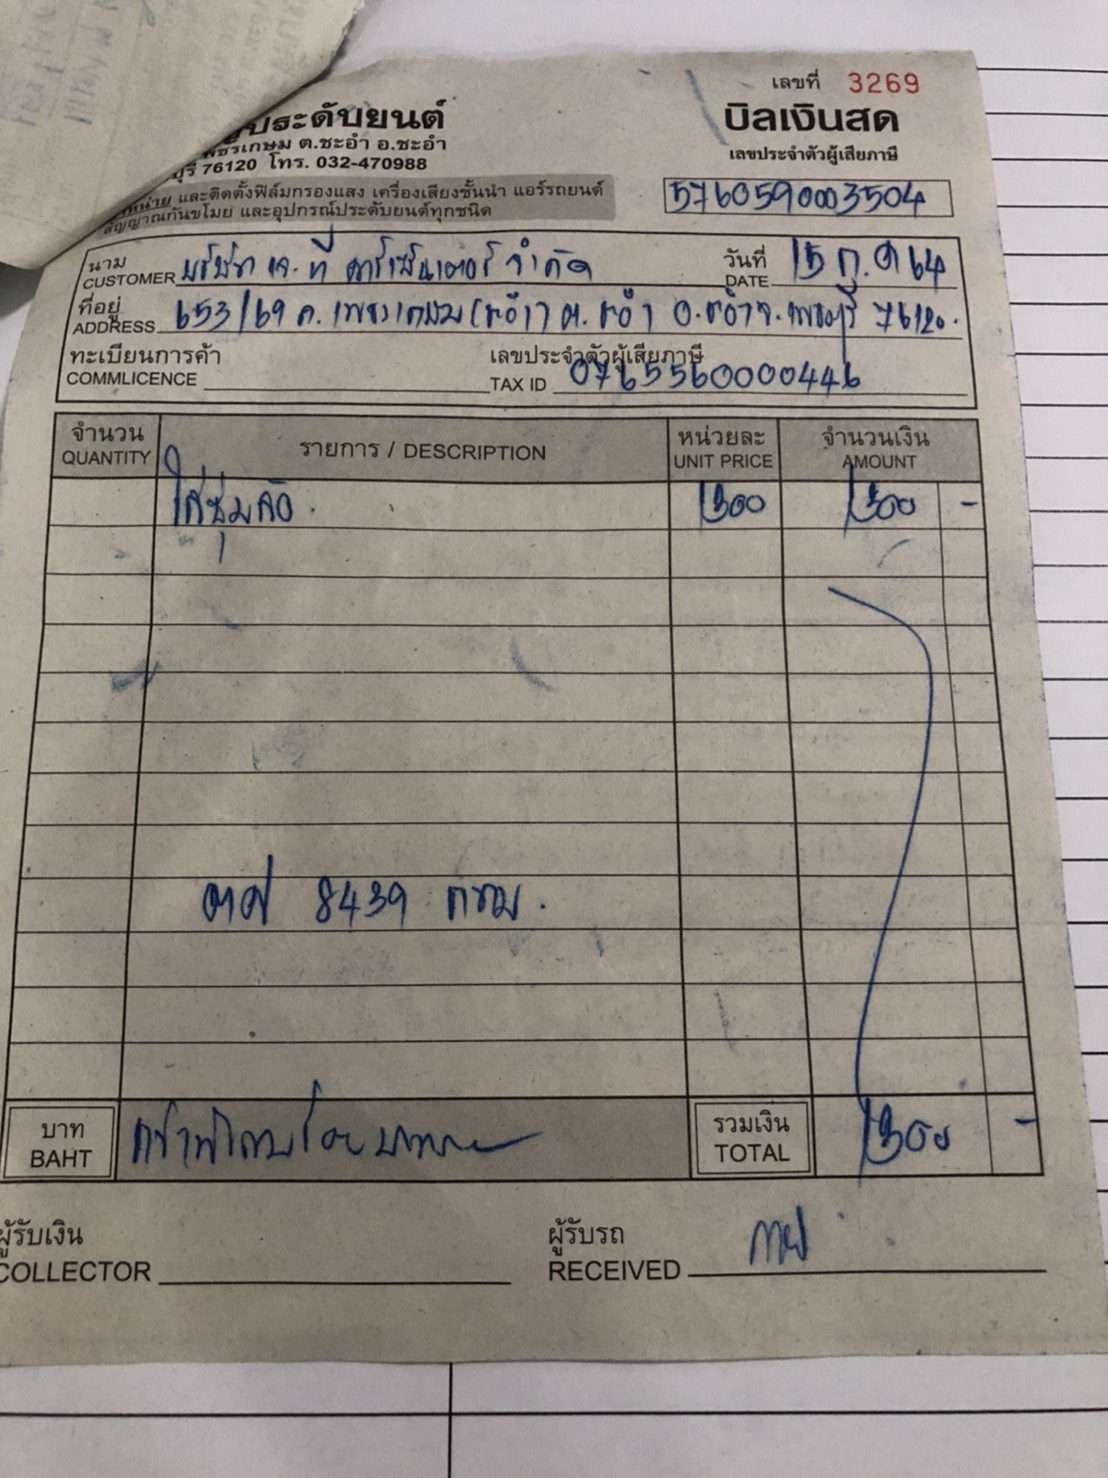 เลขที่ 3269
ประดับยนต์
บิลเงินสด
เพชรเกษม ต.ชะอำ อ.ชะอำ
76120 โทร. 032-470988
เลขประจำตัวผู้เสียภาษี
และติดตั้งฟิล์มกรองแสง เครื่องเสียงชั้นนำ แอร์รถยนต์
สัญญาณกันขโมย และอุปกรณ์ประดับยนต์ทุกชนิด
5760590003504
นาม
CUSTOMER บริษัท เจ.ที คาร์เซ็นเตอร์ จำกัด
วันที่
DATE 15 ก.ค 64
ที่อยู่
ADDRESS 653/69 ถ.เพชรเกษม (ชะอำ) ต.ชะอำ อ.ชะอำ จ.เพชรบุรี 76120.
ทะเบียนการค้า
COMMLICENCE
เลขประจำตัวผู้เสียภาษี
TAX ID 0765560000446
จำนวน
QUANTITY
รายการ / DESCRIPTION
หน่วยละ
UNIT PRICE
จำนวนเงิน
AMOUNT
ใส่ซุ้มล้อ. 1300 1300 -
8439 กทม.
บาท
BAHT
รวมเงิน
TOTAL
1300 -
ผู้รับเงิน
COLLECTOR
ผู้รับรถ
RECEIVED